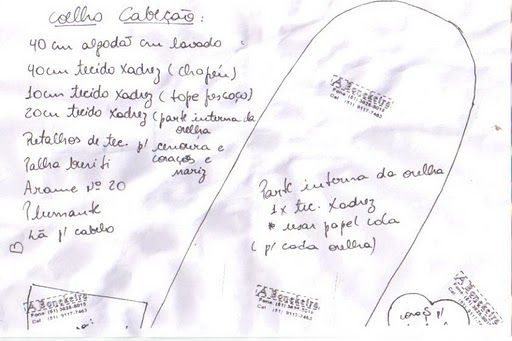 Coelho Cabeção:
40 cm algodão crú lavado
40 cm tecido xadrez (chapéu)
10cm tecido xadrez (tope pescoço)
20cm tecido xadrez (parte interna da orelha
Retalhos de tec. p/ cenoura e corações e nariz
Palha buriti
Arame nº 20
Plumante
Lã p/ cabelo
A Bonequeira
Fone (51) 3626-8015
Cel (51) 9117-7463
Parte interna da orelha
1x tec. xadrez
* usar papel cola
(p/ cada orelha)
A Bonequeira
Cel (51) 9117-7463
A Bonequeira
Cel (51) 9117-7463
coração p/
A Bonequeira